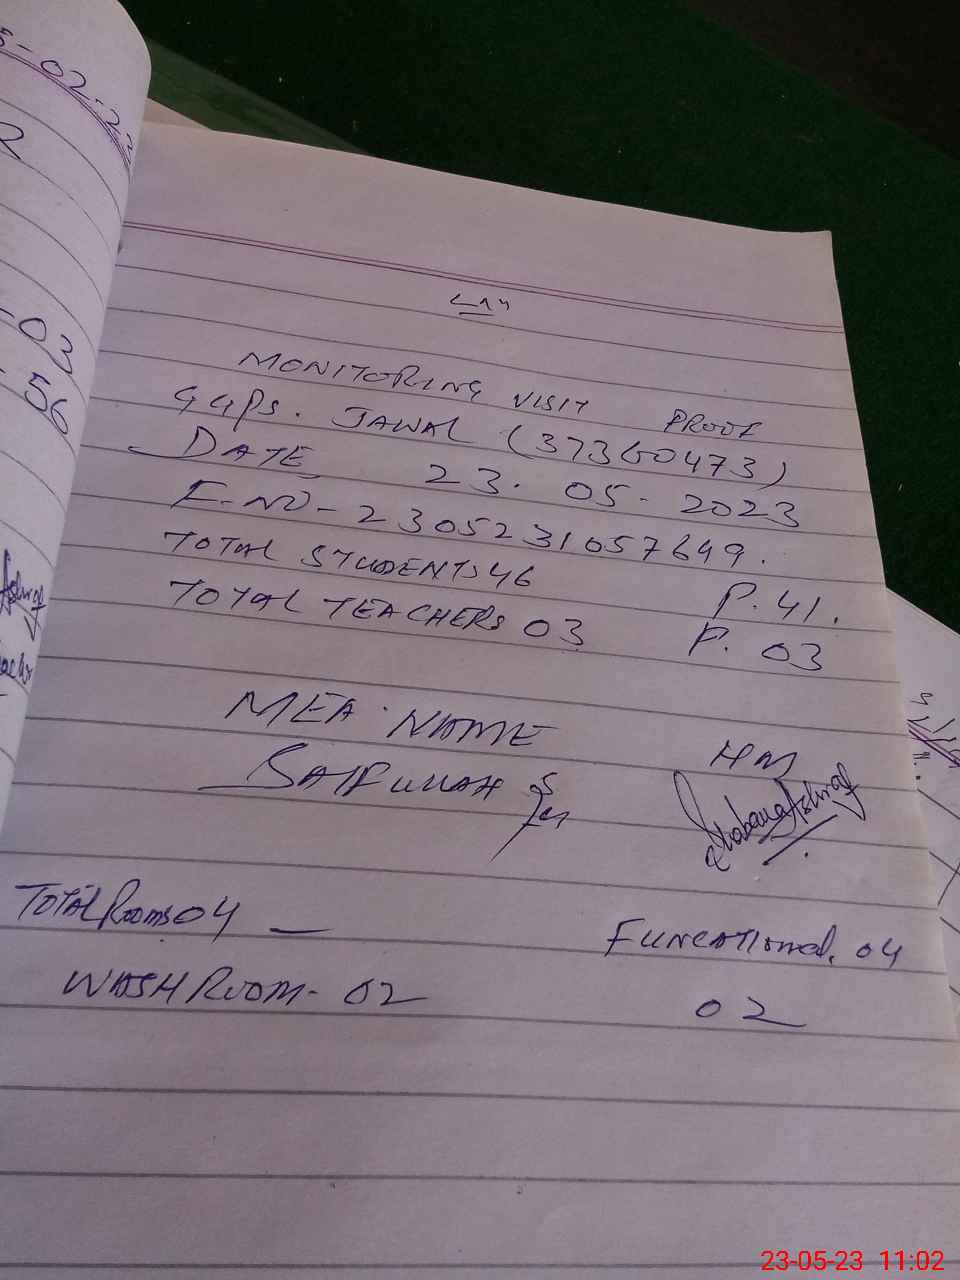 MONITORING VISIT PROOF
GGPS. JAWAL (37360473)
DATE 23. 05. 2023
E.NO - 2305231057649.
TOTAL STUDENTS 46 P. 41.
TOTAL TEACHERS 03 P. 03
MEA NAME
SAIFULLAH
HM
Shabana Ashraf
TOTAL Rooms 04 — FUNCATIONAL. 04
WASH ROOM - 02 02
-02-23
-03
56
Ashraf
23-05-23 11:02